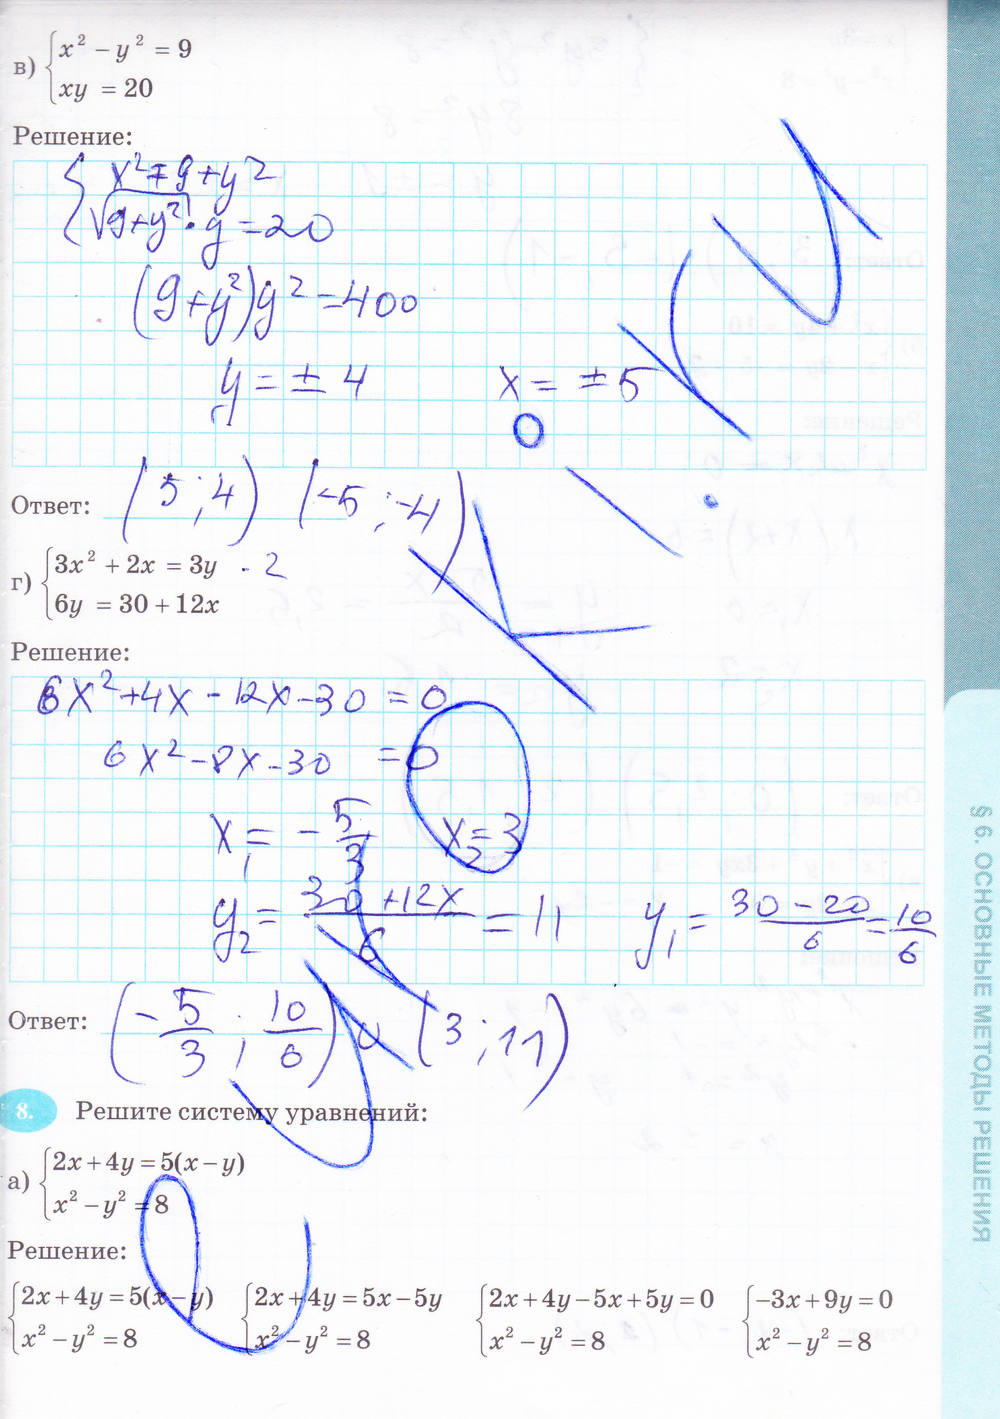 в) { x² − y² = 9
xy = 20
Решение:
{ x² = 9 + y²
√(9+y²) · y = 20
(9+y²)y² = 400
y = ± 4    x = ± 5
Ответ: (5 ; 4) (−5 ; −4)
г) { 3x² + 2x = 3y · 2
6y = 30 + 12x
Решение:
6x² + 4x − 12x − 30 = 0
6x² − 8x − 30 = 0
x₁ = −5/3    x₂ = 3
y₂ = (30 + 12x)/6 = 11    y₁ = (30 − 20)/6 = 10/6
Ответ: (−5/3 ; 10/6) и (3 ; 11)
8. Решите систему уравнений:
а) { 2x + 4y = 5(x − y)
x² − y² = 8
Решение:
{ 2x + 4y = 5(x − y)    { 2x + 4y = 5x − 5y    { 2x + 4y − 5x + 5y = 0    { −3x + 9y = 0
x² − y² = 8    x² − y² = 8    x² − y² = 8    x² − y² = 8
§ 6. ОСНОВНЫЕ МЕТОДЫ РЕШЕНИЯ